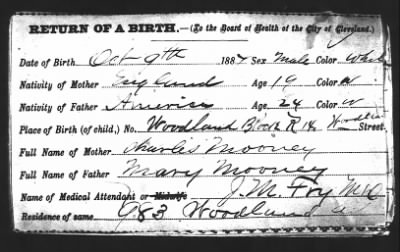 RETURN OF A BIRTH.—(To the Board of Health of the City of Cleveland.)
Date of Birth Oct 9th 1887 Sex Male Color White
Nativity of Mother England Age 19 Color W
Nativity of Father America Age 24 Color W
Place of Birth (of child,) No. Woodland Block R 14 Street.
Full Name of Mother Charles Mooney
Full Name of Father Mary Mooney
Name of Medical Attendant or Midwife J. M. Fry M.D.
Residence of same 983 Woodland a